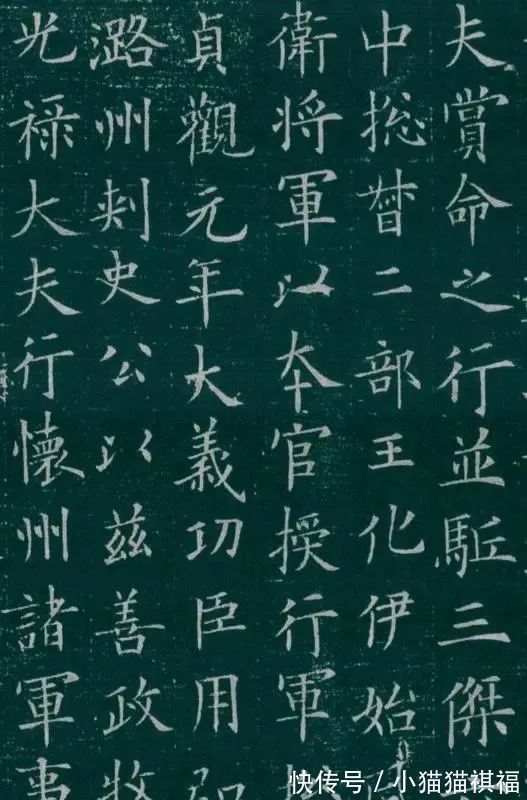 夫賞命之行並駈三傑
中捴督二部王化伊始
衛将軍以夲官授行軍
貞觀元年大義功臣用
潞州刾史公以兹善政牧
光禄大夫行懷州諸軍事
快传号/小猫猫祺福